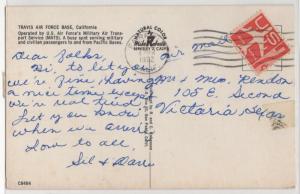 TRAVIS AIR FORCE BASE, California
Operated by U. S. Air Force's Military Air Trans-
port Service (MATS). A busy spot serving military
and civilian passengers to and from Pacific Bases.
NATURAL COLOR
Mike Roberts
BERKELEY 2, CALIF.
air mail
Dear Folks,
Hi, to let you
we're fine having
a nice time except
we're real tired
Let you know
when we arrive
Love to all,
Sil &
Mr & Mrs. Rendon
105 E. Second
Victoria Texas
C8484